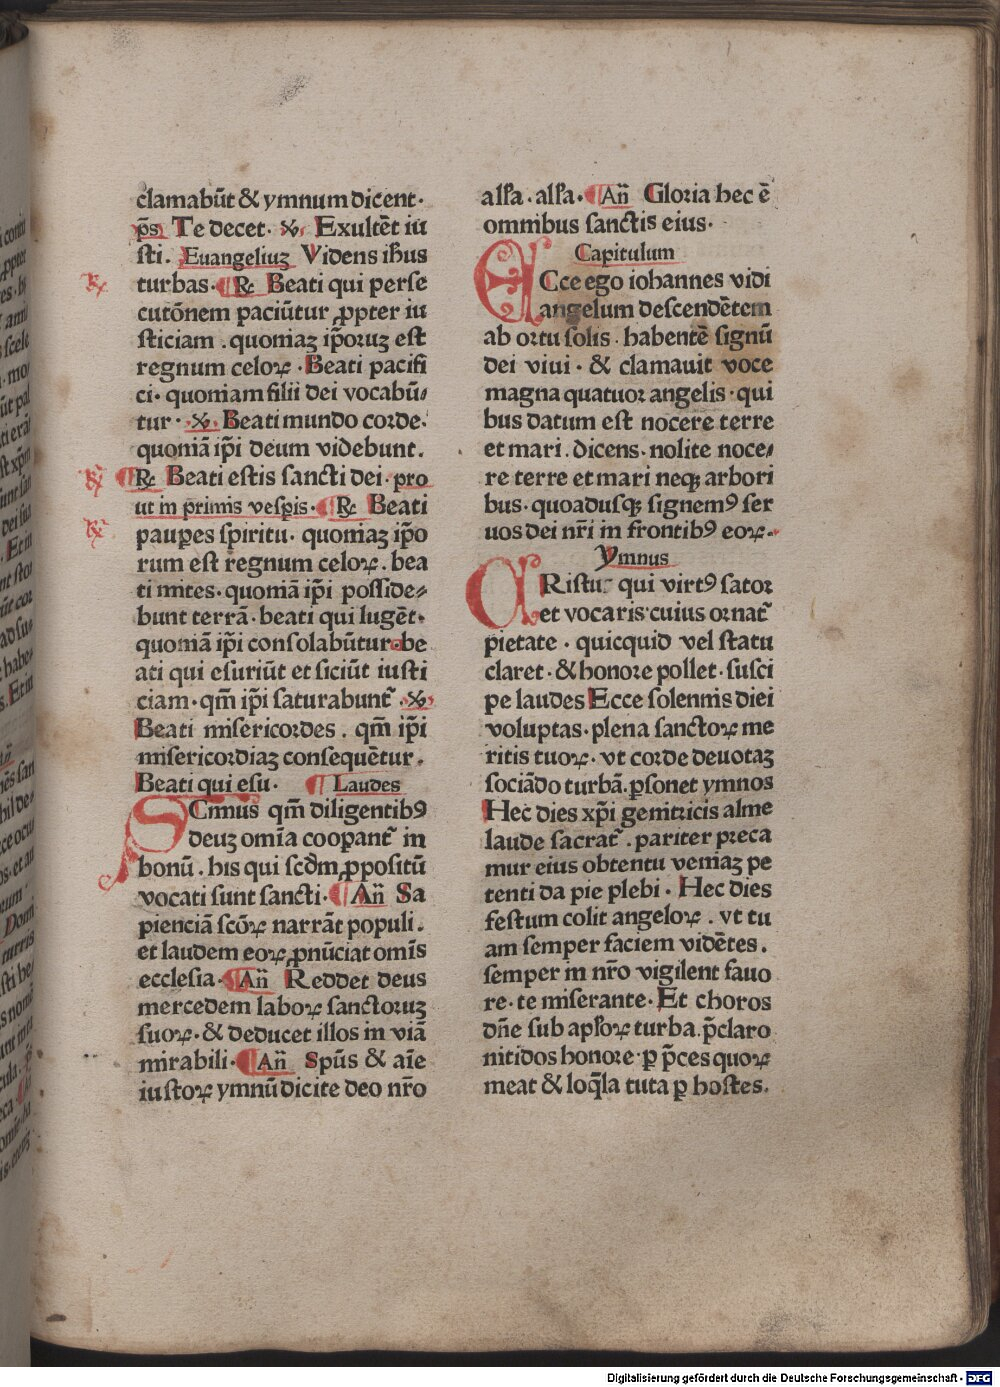 clamabūt & ymnum dicent·
p̄s Te decet. ℣. Exultēt iu
sti. Euangeliuʒ Videns ih̄us
turbas· ¶ ℟ Beati qui perse
cutōnem paciūtur ꝓpter iu
sticiam . quoniaʒ ip̄oruʒ est
regnum celoꝝ · Beati pacifi
ci· quoniam filii dei vocabū⸗
tur· ·℣. Beati mundo corde·
quoniā ip̄i deum videbunt.
¶ ℟ Beati estis sancti dei· pro
ut in primis vesp̄is· ¶ ℟ Beati
paupes spiritu· quoniaʒ ip̄o
rum est regnum celoꝝ. bea
ti mites· quoniā ip̄i posside⸗
bunt terrā· beati qui lugēt·
quoniā ip̄i consolabūtur· be
ati qui esuriūt et siciūt iusti
ciam· qm̄ ip̄i saturabunt̄ .℣.
Beati misericordes . qm̄ ip̄i
misericordiaʒ consequētur.
Beati qui esu. ¶ Laudes
SCimus qm̄ diligentibꝰ
deuʒ om̄ia cooꝑant̄ in
bonū. his qui scd̄m ꝓpositū
vocati sunt sancti· ¶ An̄ Sa
pienciā scōꝝ narrāt populi.
et laudem eoꝝ ꝓnūciat om̄is
ecclesia· ¶ An̄ Reddet deus
mercedem laboꝝ sanctoruʒ
suoꝝ· & deducet illos in viā
mirabili· ¶ An̄ Sp̄us & aīe
iustoꝝ ymnū dicite deo nr̄o
alľa . alľa· ¶ An̄ Gloria hec ē
omnibus sanctis eius·
Capitulum
ECce ego iohannes vidi
angelum descendētem
ab ortu solis . habentē signū
dei viui · & clamauit voce
magna quatuor angelis · qui
bus datum est nocere terre
et mari . dicens · nolite noce⸗
re terre et mari neqꝫ arbori
bus· quoadusqꝫ signemꝰ ser
uos dei nr̄i in frontibꝰ eoꝝ.
Ymnus
CRistu. qui virtꝰ sator
et vocaris· cuius ornat̄
pietate · quicquid vel statu
claret · & honore pollet · susci
pe laudes Ecce solennis diei
voluptas· plena sanctoꝝ me
ritis tuoꝝ· vt corde deuotaʒ
sociādo turbā. ꝑsonet ymnos
Hec dies xp̄i genitricis alme
laude sacrat̄ . pariter preca
mur eius obtentu veniaʒ pe
tenti da pie plebi · Hec dies
festum colit angeloꝝ . vt tu
am semper faciem vidētes.
semper in nr̄o vigilent fauo
re· te miserante· Et choros
dn̄e sub apľoꝝ turba. p̄claro
nitidos honore· ꝑ p̄ces quoꝝ
meat & loq̄la tuta ꝑ hostes.
Digitalisierung gefördert durch die Deutsche Forschungsgemeinschaft - DFG